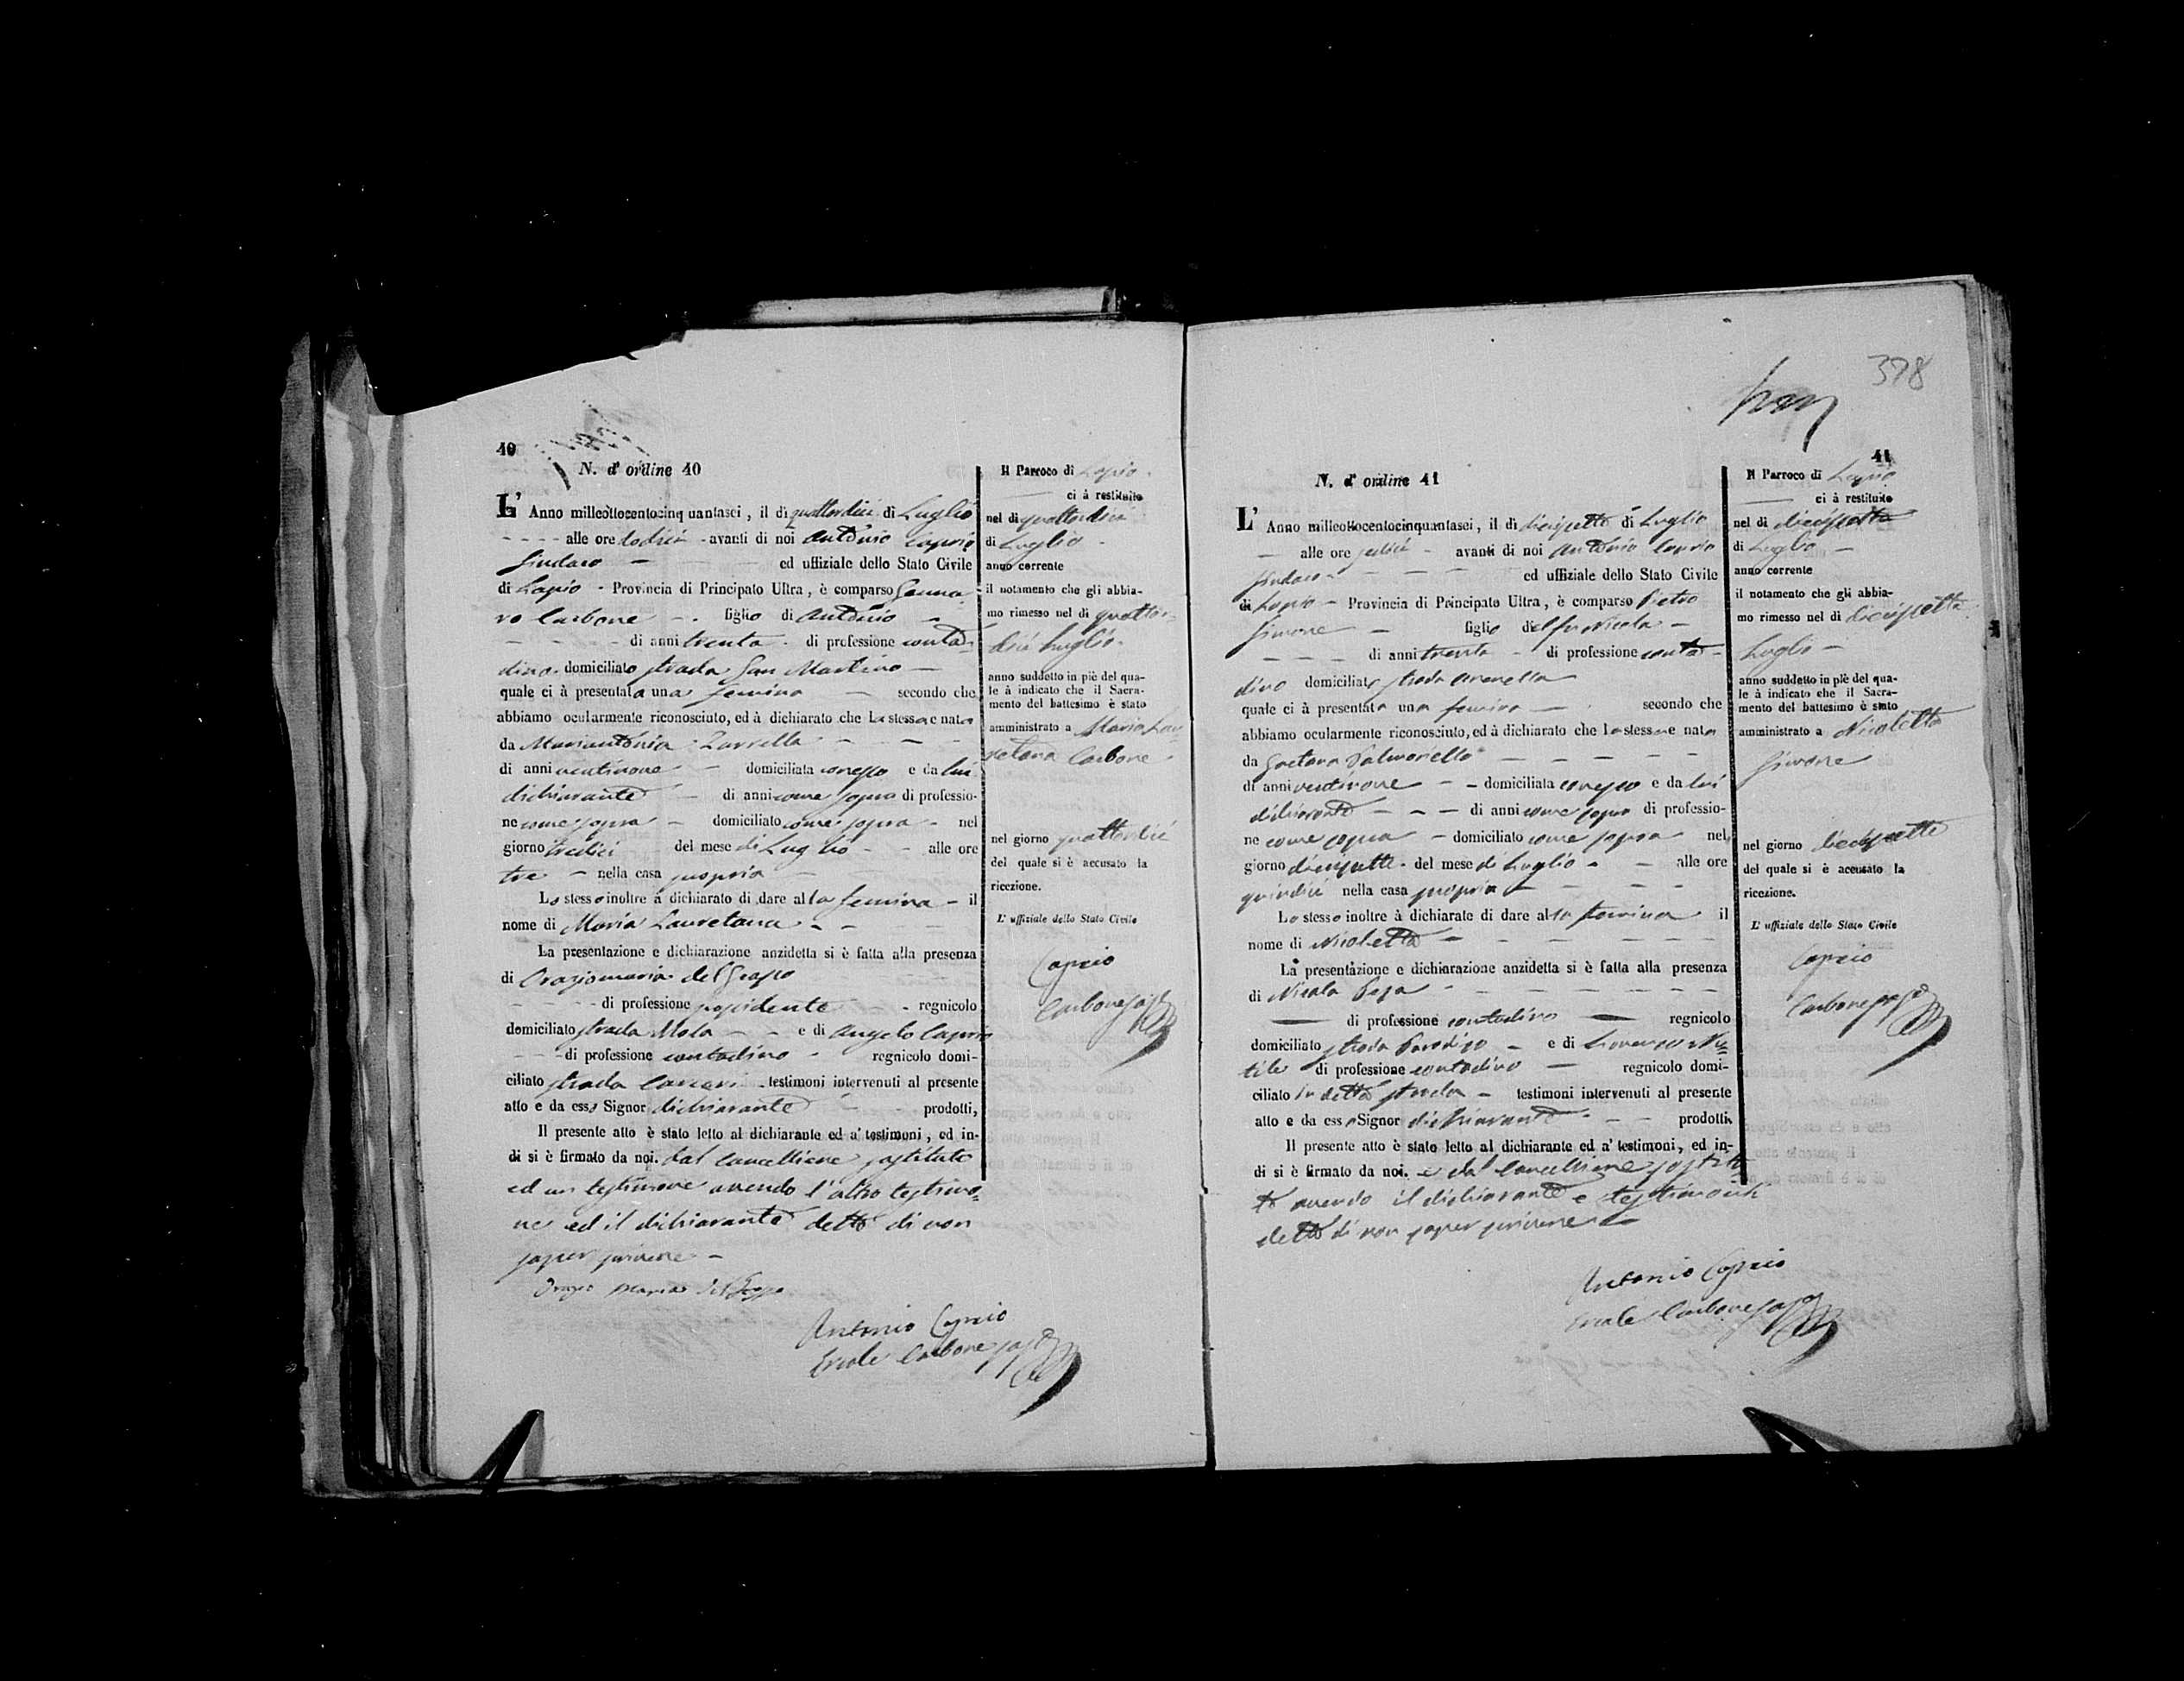 40
N. d' ordine 40
L' Anno milleottocentocinquantasei, il dì quattordici di Luglio
alle ore dodici avanti di noi Antonio Caprio
Sindaco ed uffiziale dello Stato Civile
di Lapio Provincia di Principato Ultra, è comparso Genna-
ro Carbone figlio di Antonio
di anni trenta di professione conta-
dino domiciliato strada San Martino
quale ci à presentata una femina secondo che
abbiamo ocularmente riconosciuto, ed à dichiarato che la stessa e nata
da Mariantonia Zarrella
di anni ventinove domiciliata conesso e da lui
dichiarante di anni come sopra di professio-
ne come sopra domiciliato come sopra nel
giorno tredici del mese di Luglio alle ore
tre nella casa propria
Lo stesso inoltre à dichiarato di dare alla femina il
nome di Maria Lauretana
La presentazione e dichiarazione anzidetta si è fatta alla presenza
di Oraziomaria del Grosso
di professione possidente regnicolo
domiciliato strada Mola e di Angelo Caprio
di professione contadino regnicolo domi-
ciliato strada testimoni intervenuti al presente
atto e da esso Signor dichiarante prodotti,
Il presente atto è stato letto al dichiarante ed a' testimoni, ed in-
di si è firmato da noi, dal Cancelliere sostituto
ed un testimone avendo l'altro testimo=
ne ed il dichiarante detto di non
saper scrivere
Antonio Caprio
Ercole Carbone
Il Parroco di Lapio
ci à restituito
nel dì quattordici
di Luglio
anno corrente
il notamento che gli abbia-
mo rimesso nel dì quattor-
dici Luglio
anno suddetto in piè del qua-
le à indicato che il Sacra-
mento del battesimo è stato
amministrato a Maria Lau-
retana Carbone
nel giorno quattordici
del quale si è accusato la
ricezione.
L' uffiziale dello Stato Civile
Caprio
Carbone
378
41
N. d' ordine 41
L' Anno milleottocentocinquantasei, il dì diciisette di Luglio
alle ore sedici avanti di noi Antonio Caprio
Sindaco ed uffiziale dello Stato Civile
di Lapio Provincia di Principato Ultra, è comparso Pietro
Simone figlio del fu Nicola
di anni trenta di professione conta-
dino domiciliato strada Arenella
quale ci à presentata una femina secondo che
abbiamo ocularmente riconosciuto, ed à dichiarato che la stessa e nata
da Gaetana Palmariello
di anni ventinove domiciliata conesso e da lui
dichiarante di anni come sopra di professio-
ne come sopra domiciliato come sopra nel
giorno diciisette del mese di Luglio alle ore
quindici nella casa propria
Lo stesso inoltre à dichiarato di dare alla femina il
nome di Nicoletta
La presentazione e dichiarazione anzidetta si è fatta alla presenza
di Nicola
di professione contadino regnicolo
domiciliato strada Paradiso e di
di professione contadino regnicolo domi-
ciliato in detta strada testimoni intervenuti al presente
atto e da esso Signor dichiarante prodotti,
Il presente atto è stato letto al dichiarante ed a' testimoni, ed in-
di si è firmato da noi, e dal Cancelliere sostitu
to avendo il dichiarante e testimonii
detto di non saper scrivere
Antonio Caprio
Ercole Carbone
Il Parroco di Lapio
ci à restituito
nel dì diciisette
di Luglio
anno corrente
il notamento che gli abbia-
mo rimesso nel dì diciisette
Luglio
anno suddetto in piè del qua-
le à indicato che il Sacra-
mento del battesimo è stato
amministrato a Nicoletta
Simone
nel giorno diciisette
del quale si è accusato la
ricezione.
L' uffiziale dello Stato Civile
Caprio
Carbone